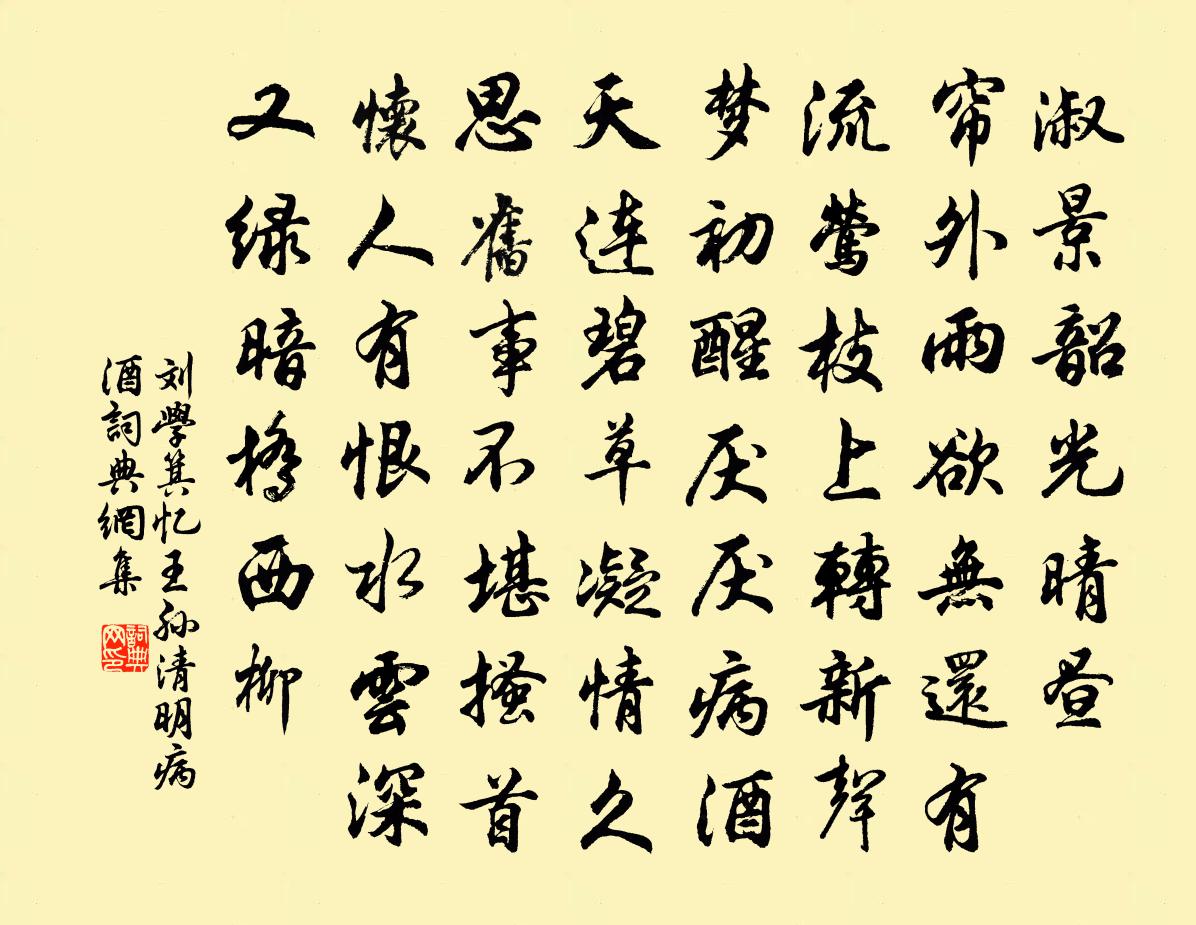 淑景韶光晴昼
帘外雨欲無還有
流莺枝上轉新聲
梦初醒厌厌病酒
天連碧草凝情久
思舊事不堪搔首
懷人有恨水雲深
又绿暗橋西柳
刘學箕忆王孙清明病
酒詞典網集
詞典
网印